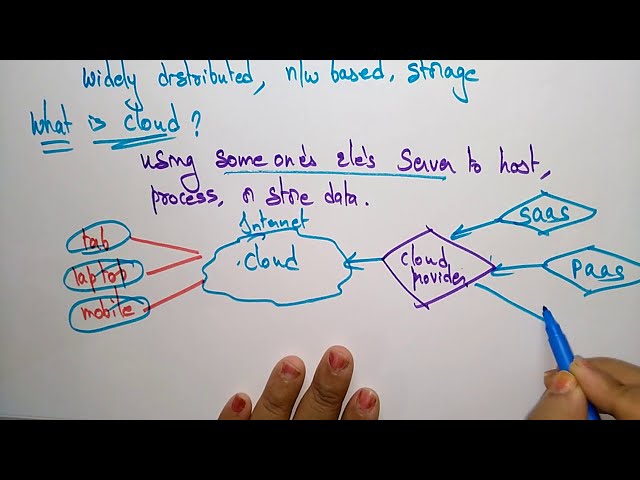 widely distributed, n/w based, storage
What is cloud?
using someone's ele's server to host,
process, or store data.
Internet
tab
laptop
mobile
cloud
cloud
provider
saas
paas